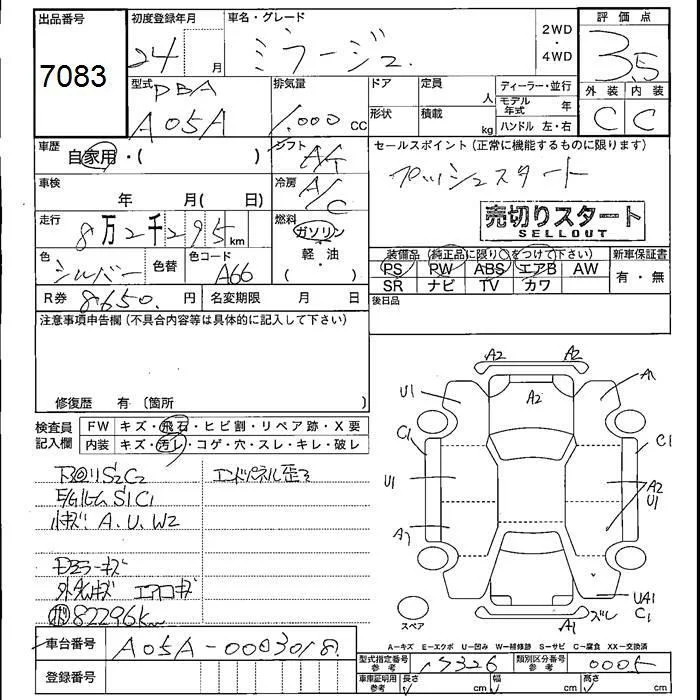 出品番号
7083
初度登録年月
24 年 月
車名・グレード
ミラージュ
2WD
・
4WD
評価点
3.5
外装 内装
C C
型式
DBA
A05A
排気量
1.000 cc
ドア
定員
人
形状
積載
kg
ディーラー・並行
モデル年式 年
ハンドル 左・右
車歴
自家用・( )
シフト
AT
セールスポイント (正常に機能するものに限ります)
プッシュスタート
車検
年 月( 日)
冷房
A/C
売切りスタート
SELLOUT
走行
8万2千295 km
燃料
ガソリン
・
軽・油
( )
色
シルバー
色替
色コード
A66
装備品 (純正品に限り○をつけて下さい)
PS PW ABS エアB AW
SR ナビ TV カワ
新車保証書
有・無
R券 8.650. 円
名変期限 月 日
後日品
注意事項申告欄 (不具合内容等は具体的に記入して下さい)
修復歴 有 〔箇所 〕
検査員
記入欄
FW キズ・飛石・ヒビ割・リペア跡・X要
内装 キズ・汚レ・コゲ・穴・スレ・キレ・破レ
下回リS2C2
エンドパネル歪ミ
E/GルームS1C1
小キズ A.U.W2
ドアミラーキズ
82296km
A2 A2
U1 A2 A1
C1 C1
U1 A2
U1
A1
UA1
C1
ズレ
A1
スペア
A-キズ E-エクボ U-凹み W-補修跡 S-サビ C-腐食 XX-交換済
車台番号 A05A-0003018
型式指定番号
参考
17326
類別区分番号
参考
0005
登録番号
車庫証明用
参考
長さ cm 幅 cm 高さ cm